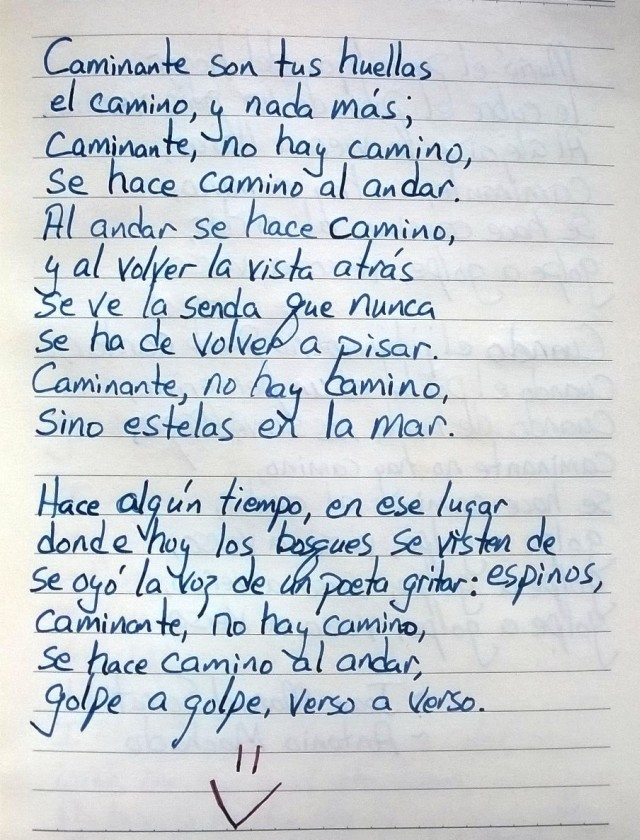 Caminante son tus huellas
el camino, y nada más;
Caminante, no hay camino,
se hace camino al andar.
Al andar se hace camino,
y al volver la vista atrás
se ve la senda que nunca
se ha de volver a pisar.
Caminante, no hay camino,
sino estelas en la mar.

Hace algún tiempo, en ese lugar
donde hoy los bosques se visten de
se oyó la voz de un poeta gritar: espinos,
Caminante, no hay camino,
se hace camino al andar,
golpe a golpe, verso a verso.